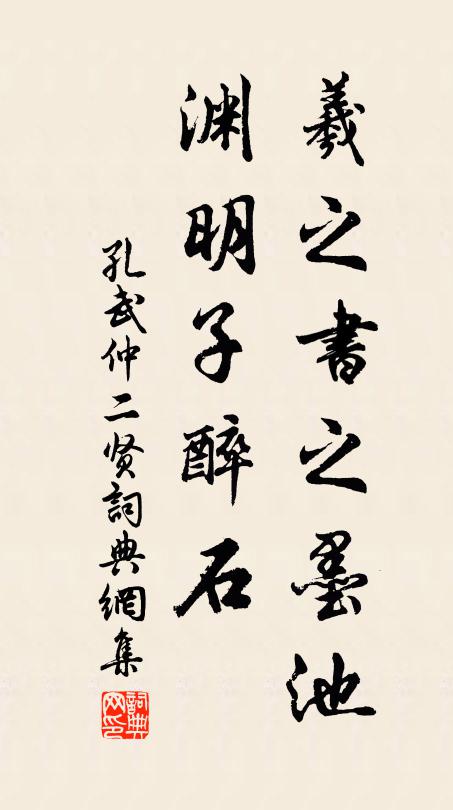 羲之書之墨池
渊明子醉石
孔武仲二贤詞典網集
詞典网印